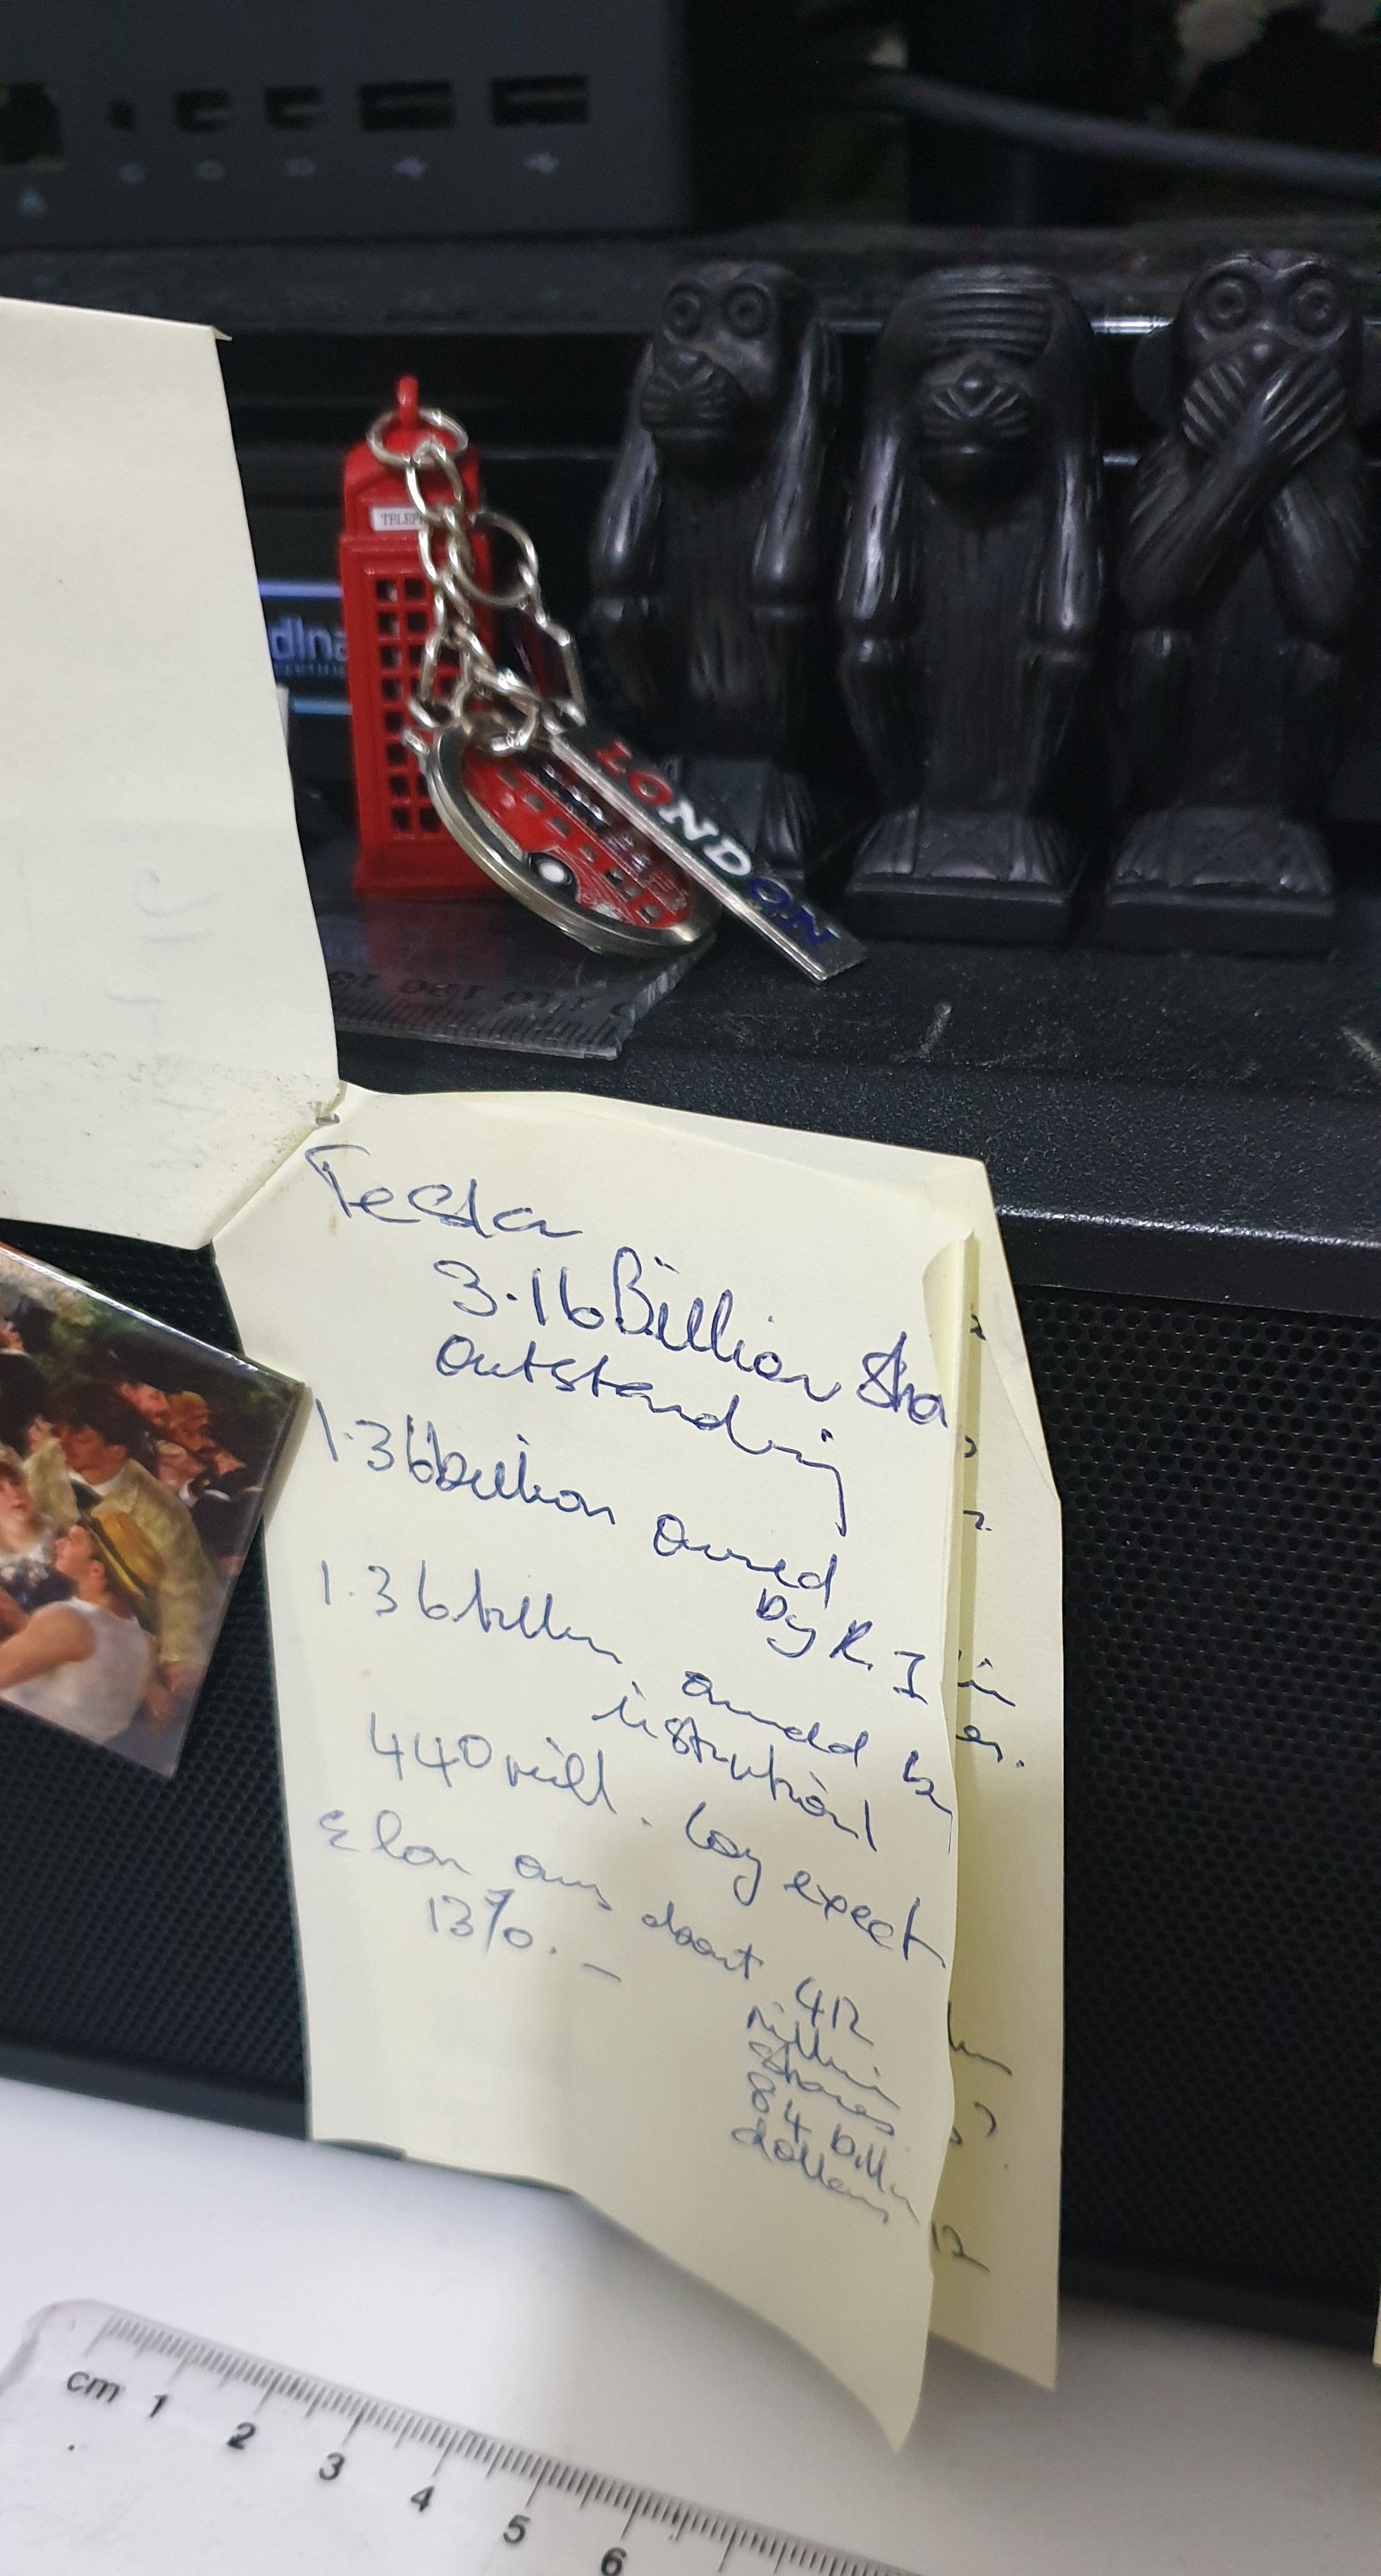 TELEP
dlna
LONDON
Tesla
3.16 Billion Sha
outstanding
1.36 billion owned
by R. I
1.36 billn
owned by
institution
440 mill.
expect
Elon owns about
13%. –
412
million
shares
84 billn
dollars
12
cm 1 2 3 4 5 6